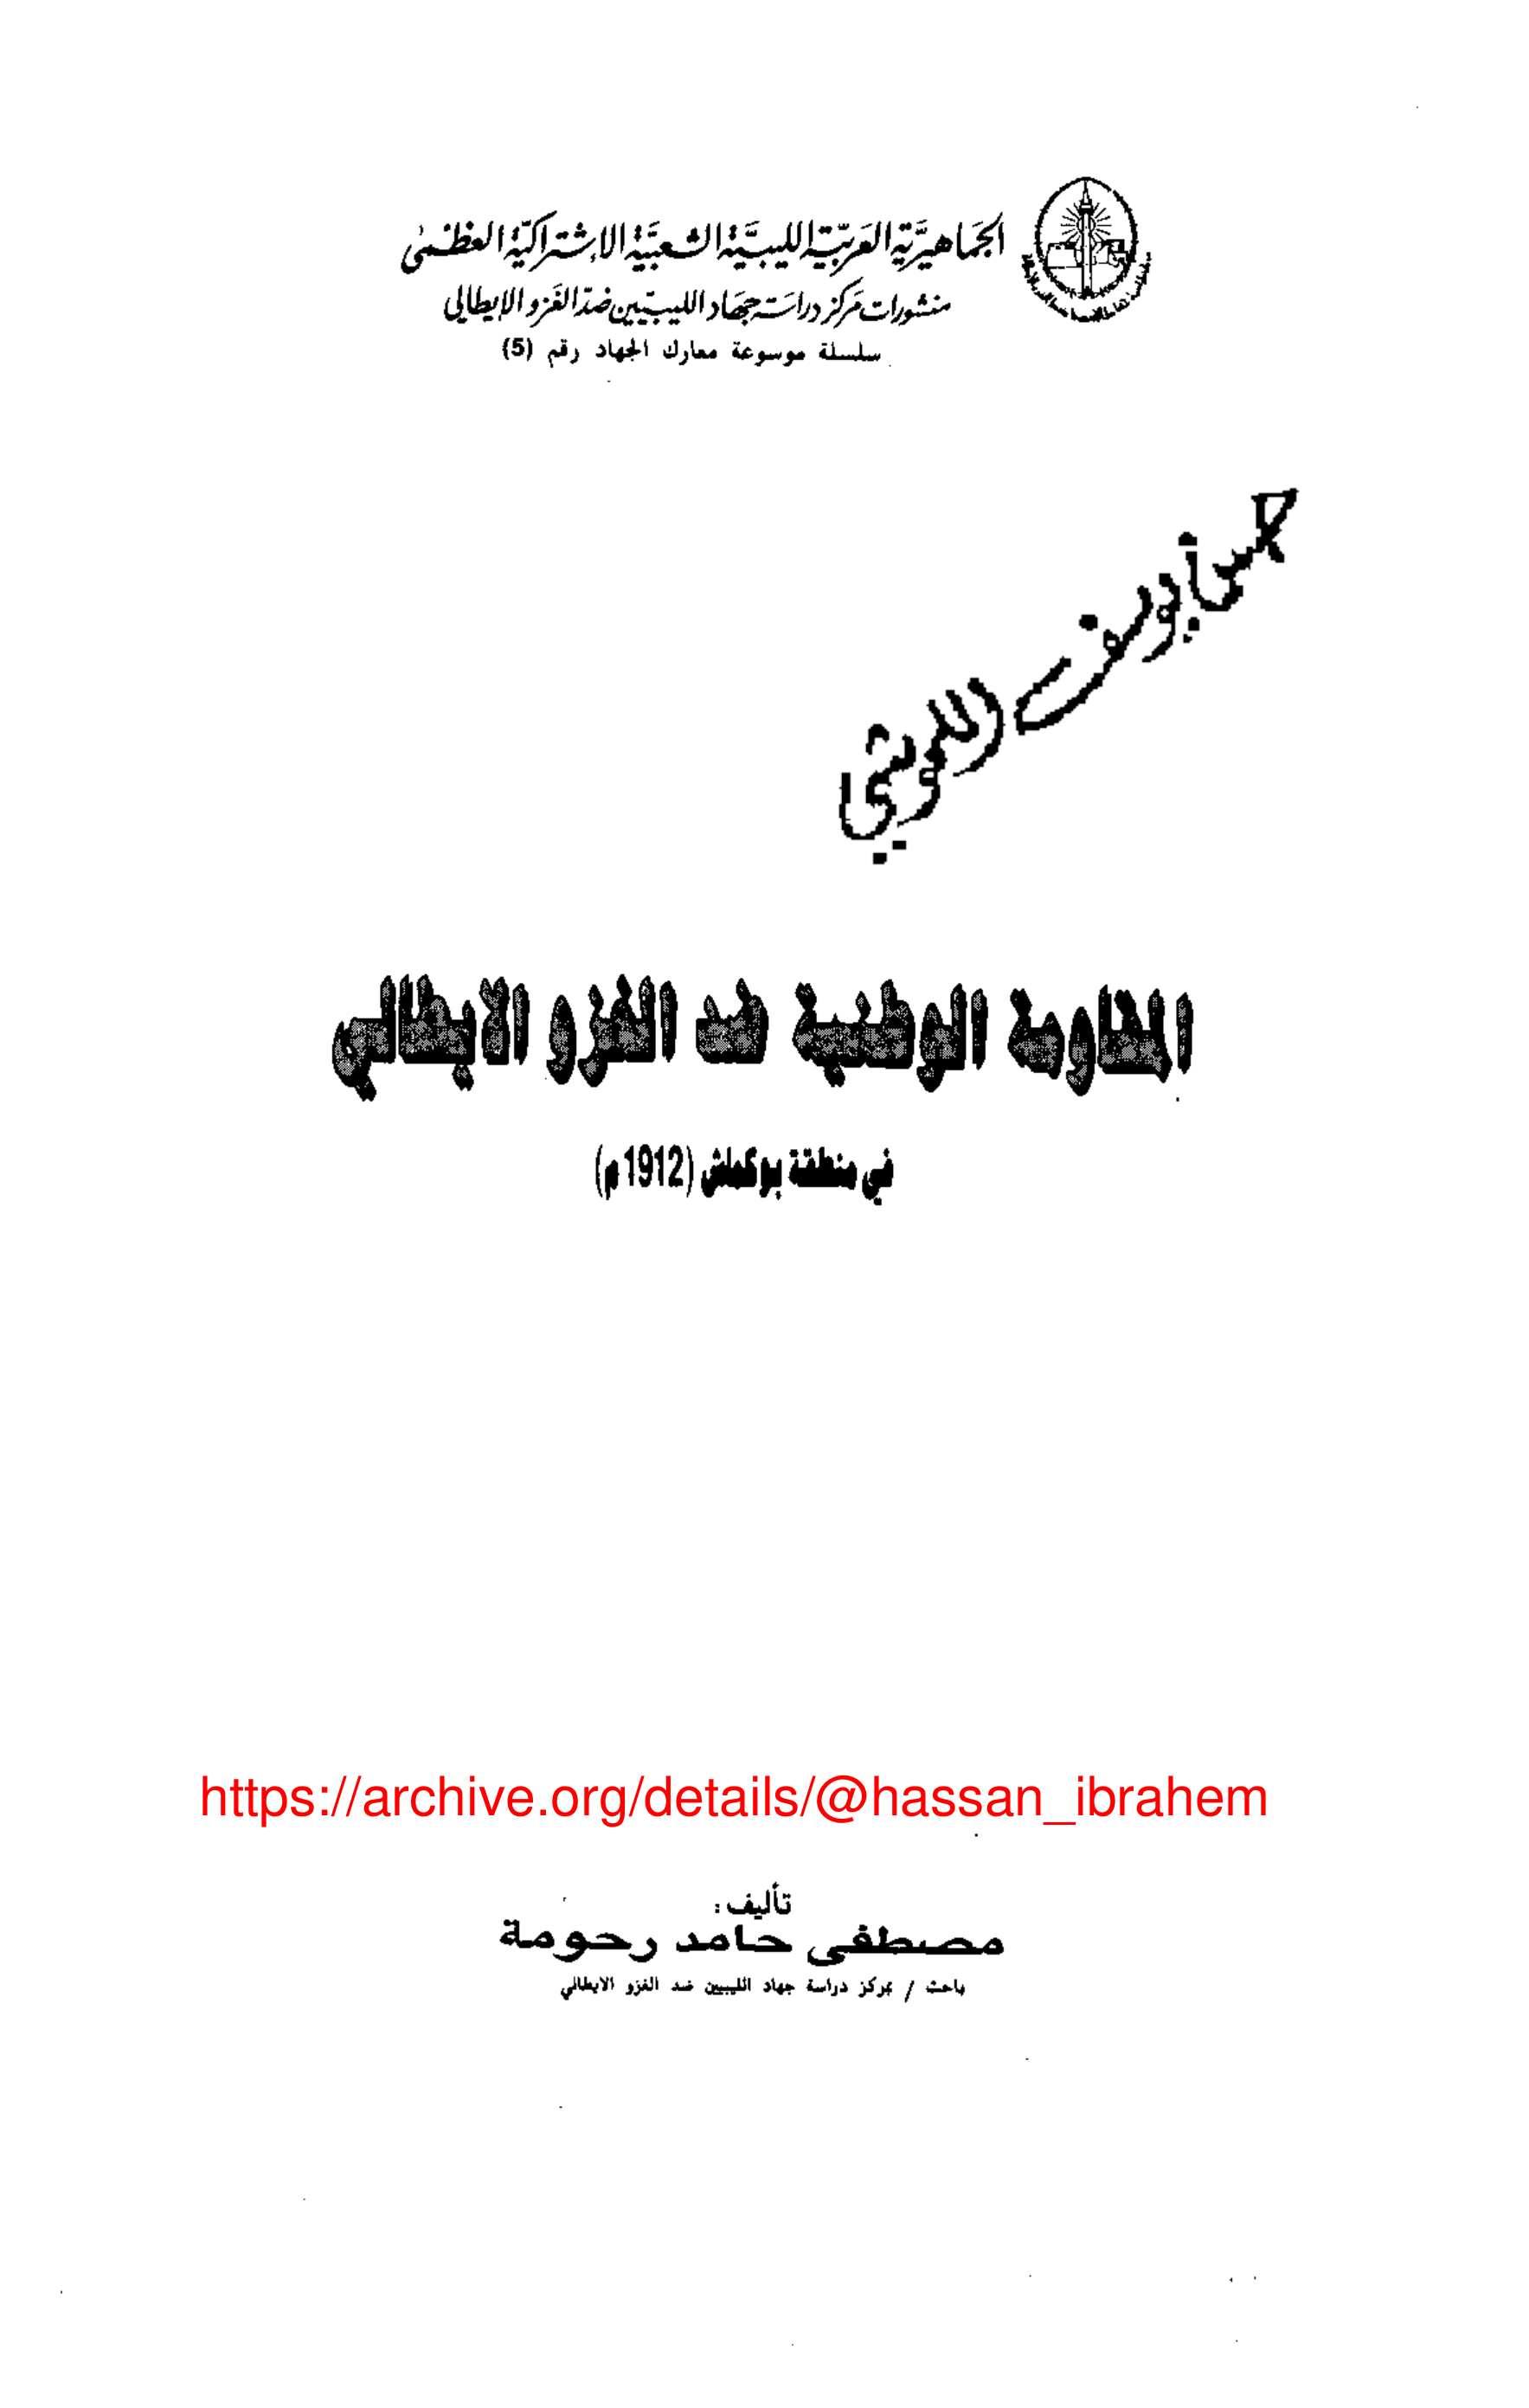 الجماهيرية العربية الليبية الشعبية الإشتراكية العظمى
منشورات مركز دراسة جهاد الليبيين ضد الغزو الإيطالي
سلسلة موسوعة معارك الجهاد رقم (5)
المقاومة الوطنية ضد الغزو الايطالي
في منطقة بوكماش (1912م)
https://archive.org/details/@hassan_ibrahem
تأليف :
مصطفى حامد رحومة
باحث / بمركز دراسة جهاد الليبيين ضد الغزو الايطالي